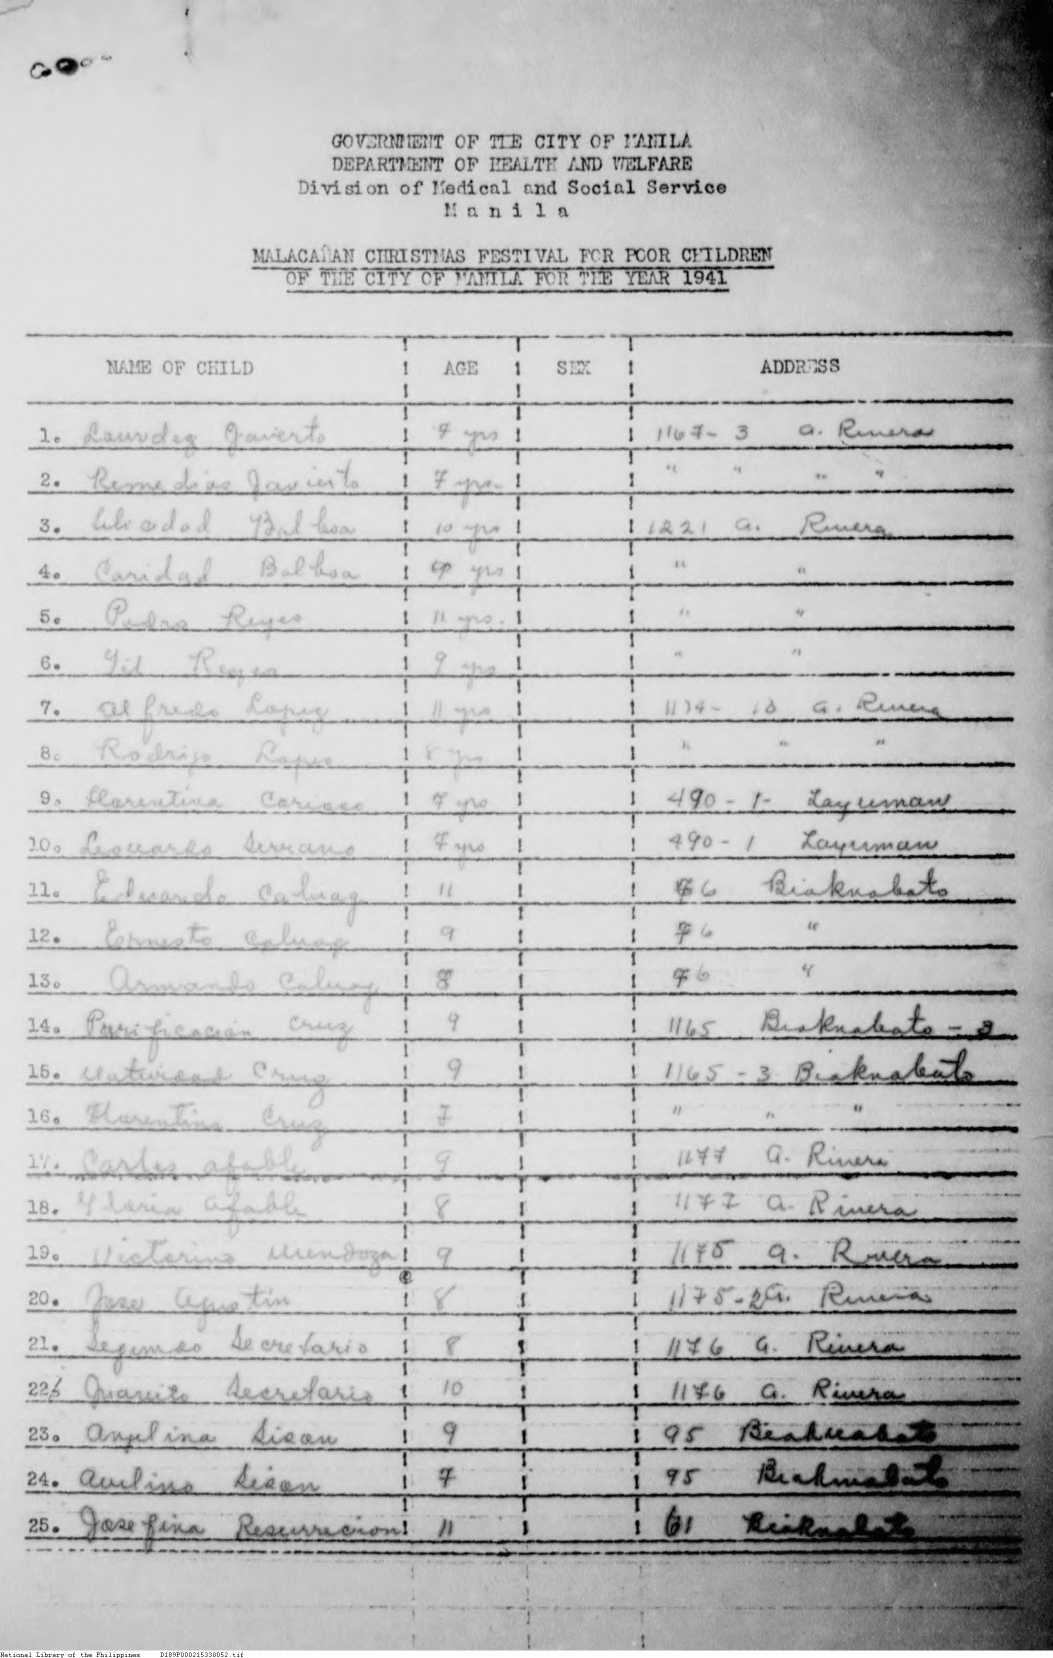 GOVERNMENT OF THE CITY OF MANILA
DEPARTMENT OF HEALTH AND WELFARE
Division of Medical and Social Service
M a n i l a
MALACAÑAN CHRISTMAS FESTIVAL FOR POOR CHILDREN
OF THE CITY OF MANILA FOR THE YEAR 1941
NAME OF CHILD AGE SEX ADDRESS
1. Lourdez Javierto 9 yrs 1167-3 A. Rivera
2. Remedios Javierto 7 yrs. " " " "
3. Balboa 10 yrs 1221 A. Rivera
4. Caridad Balboa yrs " "
5. Pedro Reyes 11 yrs. " "
6. Gil Reyes 9 yrs " "
7. Alfredo Lopez 11 yrs 1174- A. Rivera
8. Rodrigo Lopez 8 yrs " " "
9. Florentina Carioso 7 yrs 490-1- Layuman
10. Leonardo Serrano 7 yrs 490-1 Layuman
11. Eduardo Caluag 11 76 Biaknabato
12. Ernesto Caluag 9 76 "
13. Armando Caluag 8 76 "
14. Purificacion Cruz 9 1165 Biaknabato - 3
15. Natividad Cruz 9 1165 - 3 Biaknabato
16. Florentino Cruz 7 " " "
17. Carlos Afable 9 1177 A. Rivera
18. Gloria Afable 8 1177 A. Rivera
19. Victorino Mendoza 9 1175 A. Rivera
20. Jose Agustin 8 1175-2 A. Rivera
21. Segundo Secretario 8 1176 A. Rivera
22. Juanito Secretario 10 1176 A. Rivera
23. Angelina Sison 9 95 Biaknabato
24. Avelino Sison 7 95 Biaknabato
25. Josefina Resurreccion 11 61 Biaknabato
National Library of the Philippines D189P000215338052.tif